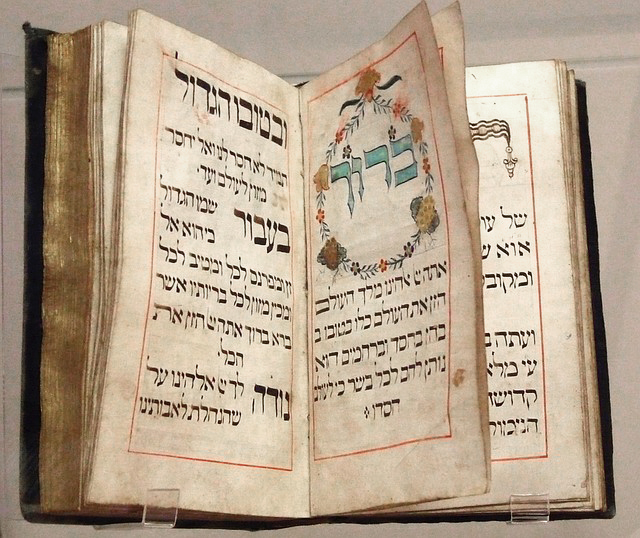 של
ועתה
ברוך
אתה יי אהינו מלך העולם
הזן את העולם כלו בטובו
בחן בחסד וברחמים הוא
נותן לחם לכל בשר כי לעולם
חסדו
ובטובו הגדול
תמיד לא חסר לנו ואל יחסר
מזון לעולם ועד.
בעבור שמו הגדול
כי הוא אל
זן ומפרנס לכל ומטיב לכל
ומכין מזון לכל בריותיו אשר
ברא ברוך אתה יי הזן את
הכל.
נודה לך יי אלהינו על
שהנחלת לאבותינו